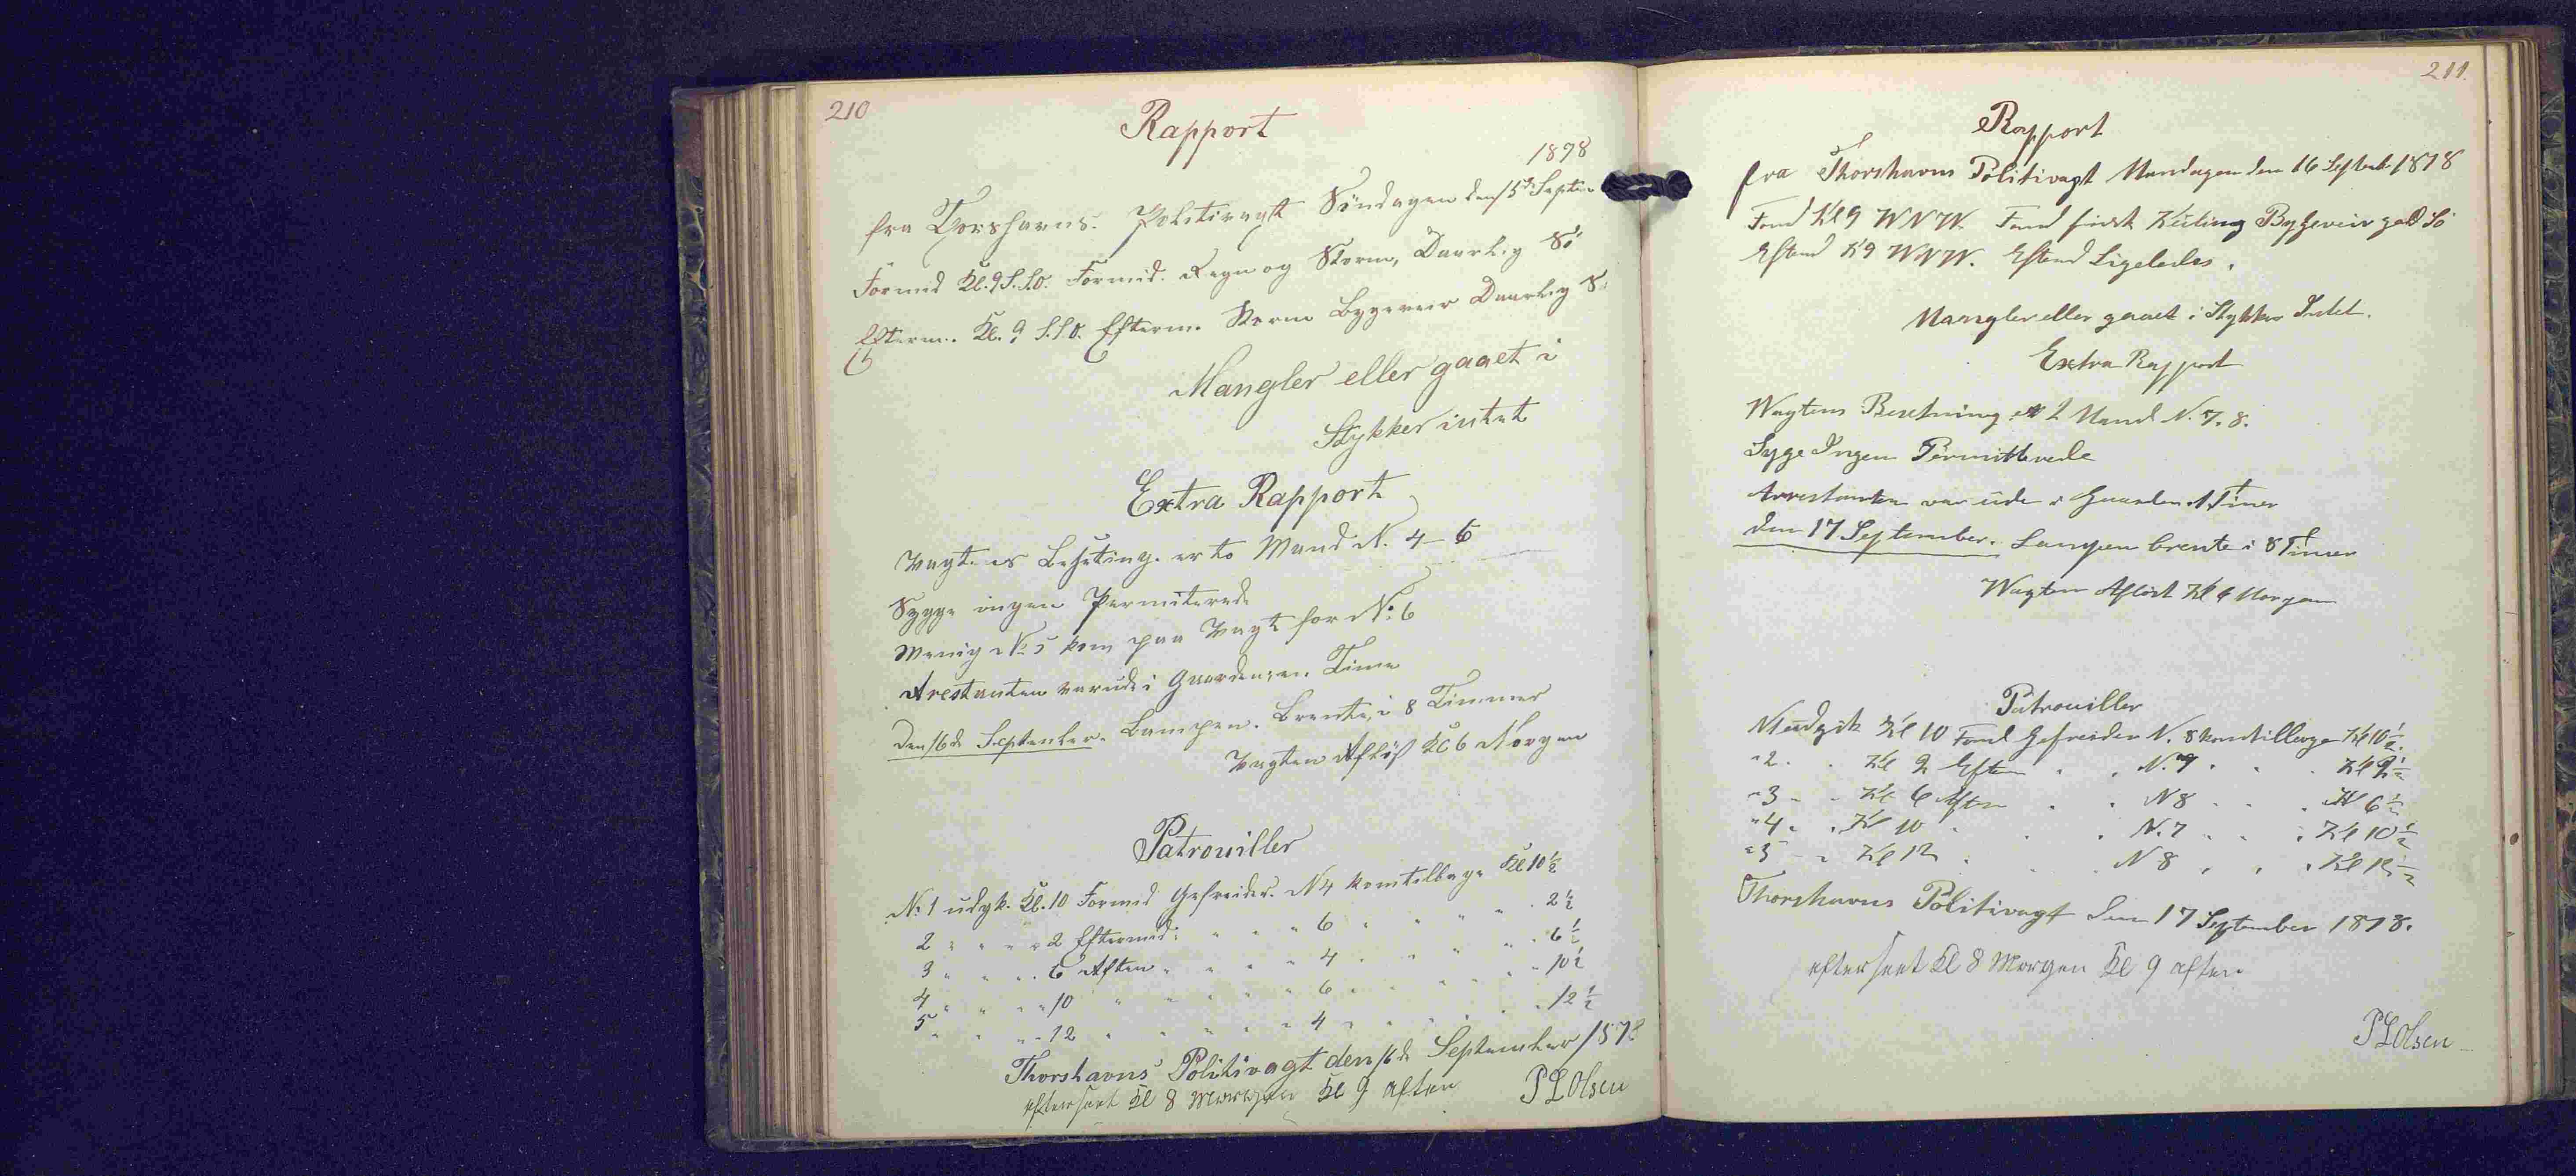 210
Rapport
1878
fra Thorshavns. Politivagt Söndagen den 15de Septem
Formid Kl. 9 S.S.O. Formid. Regn og Storm, Daarlig Sö
Efterm. Kl. 9 S.S.O. Efterm. Storm Bygeveir Daarlig S
Mangler eller gaaet i
Stykker intet
Extra Rapport
Vagtens Besetning. er to Mand N. 4 - 6
Sygge ingen Permiterede
Menig No 5 kom paa Vagt for No: 6
Arestanten var ude i Gaarden en Time
Den 16de September. Lampen. Brente i 8 Timmer
Vagten Aflöst Kl 6 Morgen
Patrouiller
No 1 udgk. Kl. 10 Formid Gefreider. N 4 kom tilbage Kl 10 ½
2 " " " 2 Eftermid: " " " 6 " " " " 2 ½
3 " " " 6 Aften " " " 4 " " " " 6 ½
4 " " " 10 " " " " 6 " " " " 10 ½
5 " " " 12 " " " " 4 " " " " 12 ½
Thorshavns Politivagt den 16de September 1878
efterseet Kl 8 Morgen Kl 9 aften P L Olsen
211.
Rapport
fra Thorshavns Politivagt Mandagen den 16 Septemb 1878
Formd Kl 9 WNW. Formd frisk Kuling Bygeveir god Sö
Eftmd Kl 9 WNW. Eftmd Ligeledes.
Mangler eller gaaet i Stykker Intet.
Extra Rapport
Wagtens Besetning er 2 Mand N. 7. 8.
Syge Ingen Permitterede
Arrestanten var ude i Gaarden 1 Timer
den 17 September. Lampen brente i 8 Timer
Wagten Aflöst Kl 6 Morgen
Patrouiller
N 1 udgik Kl 10 Formd Gefreider N. 8 kom tilbage Kl 10 ½.
" 2 . . Kl 2 Eftm . . N. 7 . . . Kl 2 ½
" 3 - . Kl 6 Aften . . N 8 . . . Kl 6 ½
" 4 . . Kl 10 . . . N. 7 . . . Kl 10 ½
" 5 - " Kl 12 . . . N 8 . . . Kl 12 ½
Thorshavns Politivagt den 17 September 1878.
efterseet Kl 8 Morgen Kl 9 aften
P L Olsen